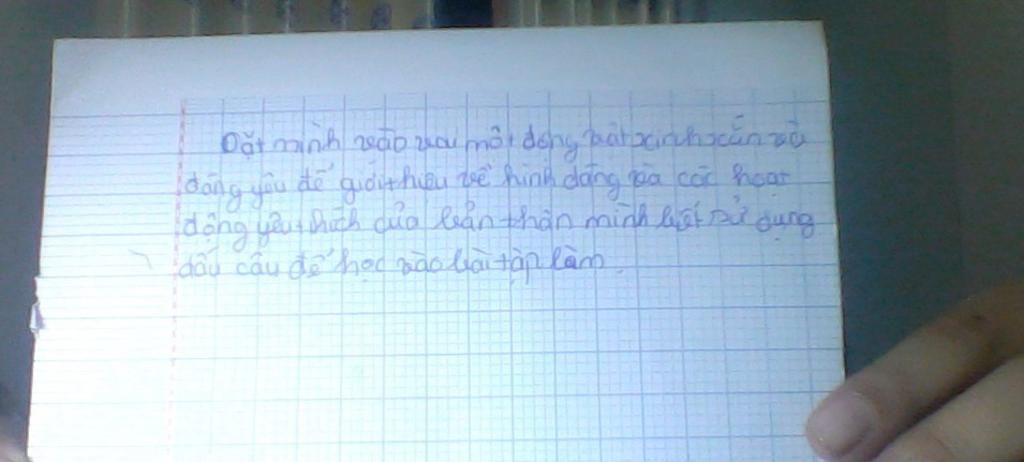 Đặt mình vào vai một động vật xinh xắn và
đáng yêu để giới thiệu về hình dáng và các hoạt
động yêu thích của bản thân mình biết sử dụng
dấu câu đã học vào bài tập làm.